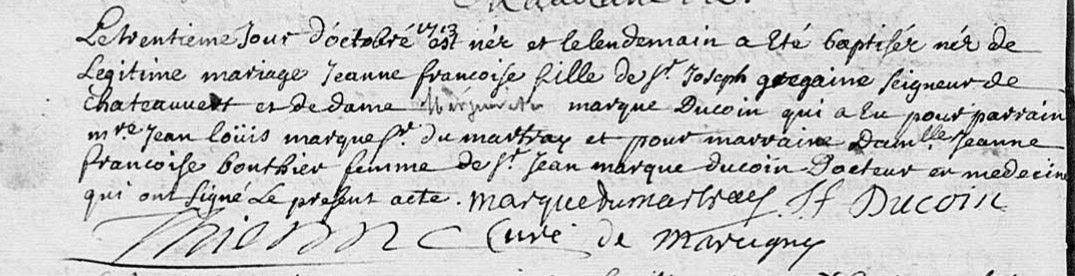 Le trentieme Jour d'octobre 1713 est néz et le lendemain a Eté baptiséz néz de
Legitime mariage Jeanne francoise fille de Sr. Joseph gregaine seigneur de
chateauvert et de dame marque Ducoin qui a Eu pour parrain
mre Jean loüis marque Sr. du martray et pour marraine Dam.lle Jeanne
francoise bouthier femme de Sr. Jean marque ducoin Docteur en medecine
qui ont signé Le present acte. marque du martray Jf Ducoin
Curé de marcigny